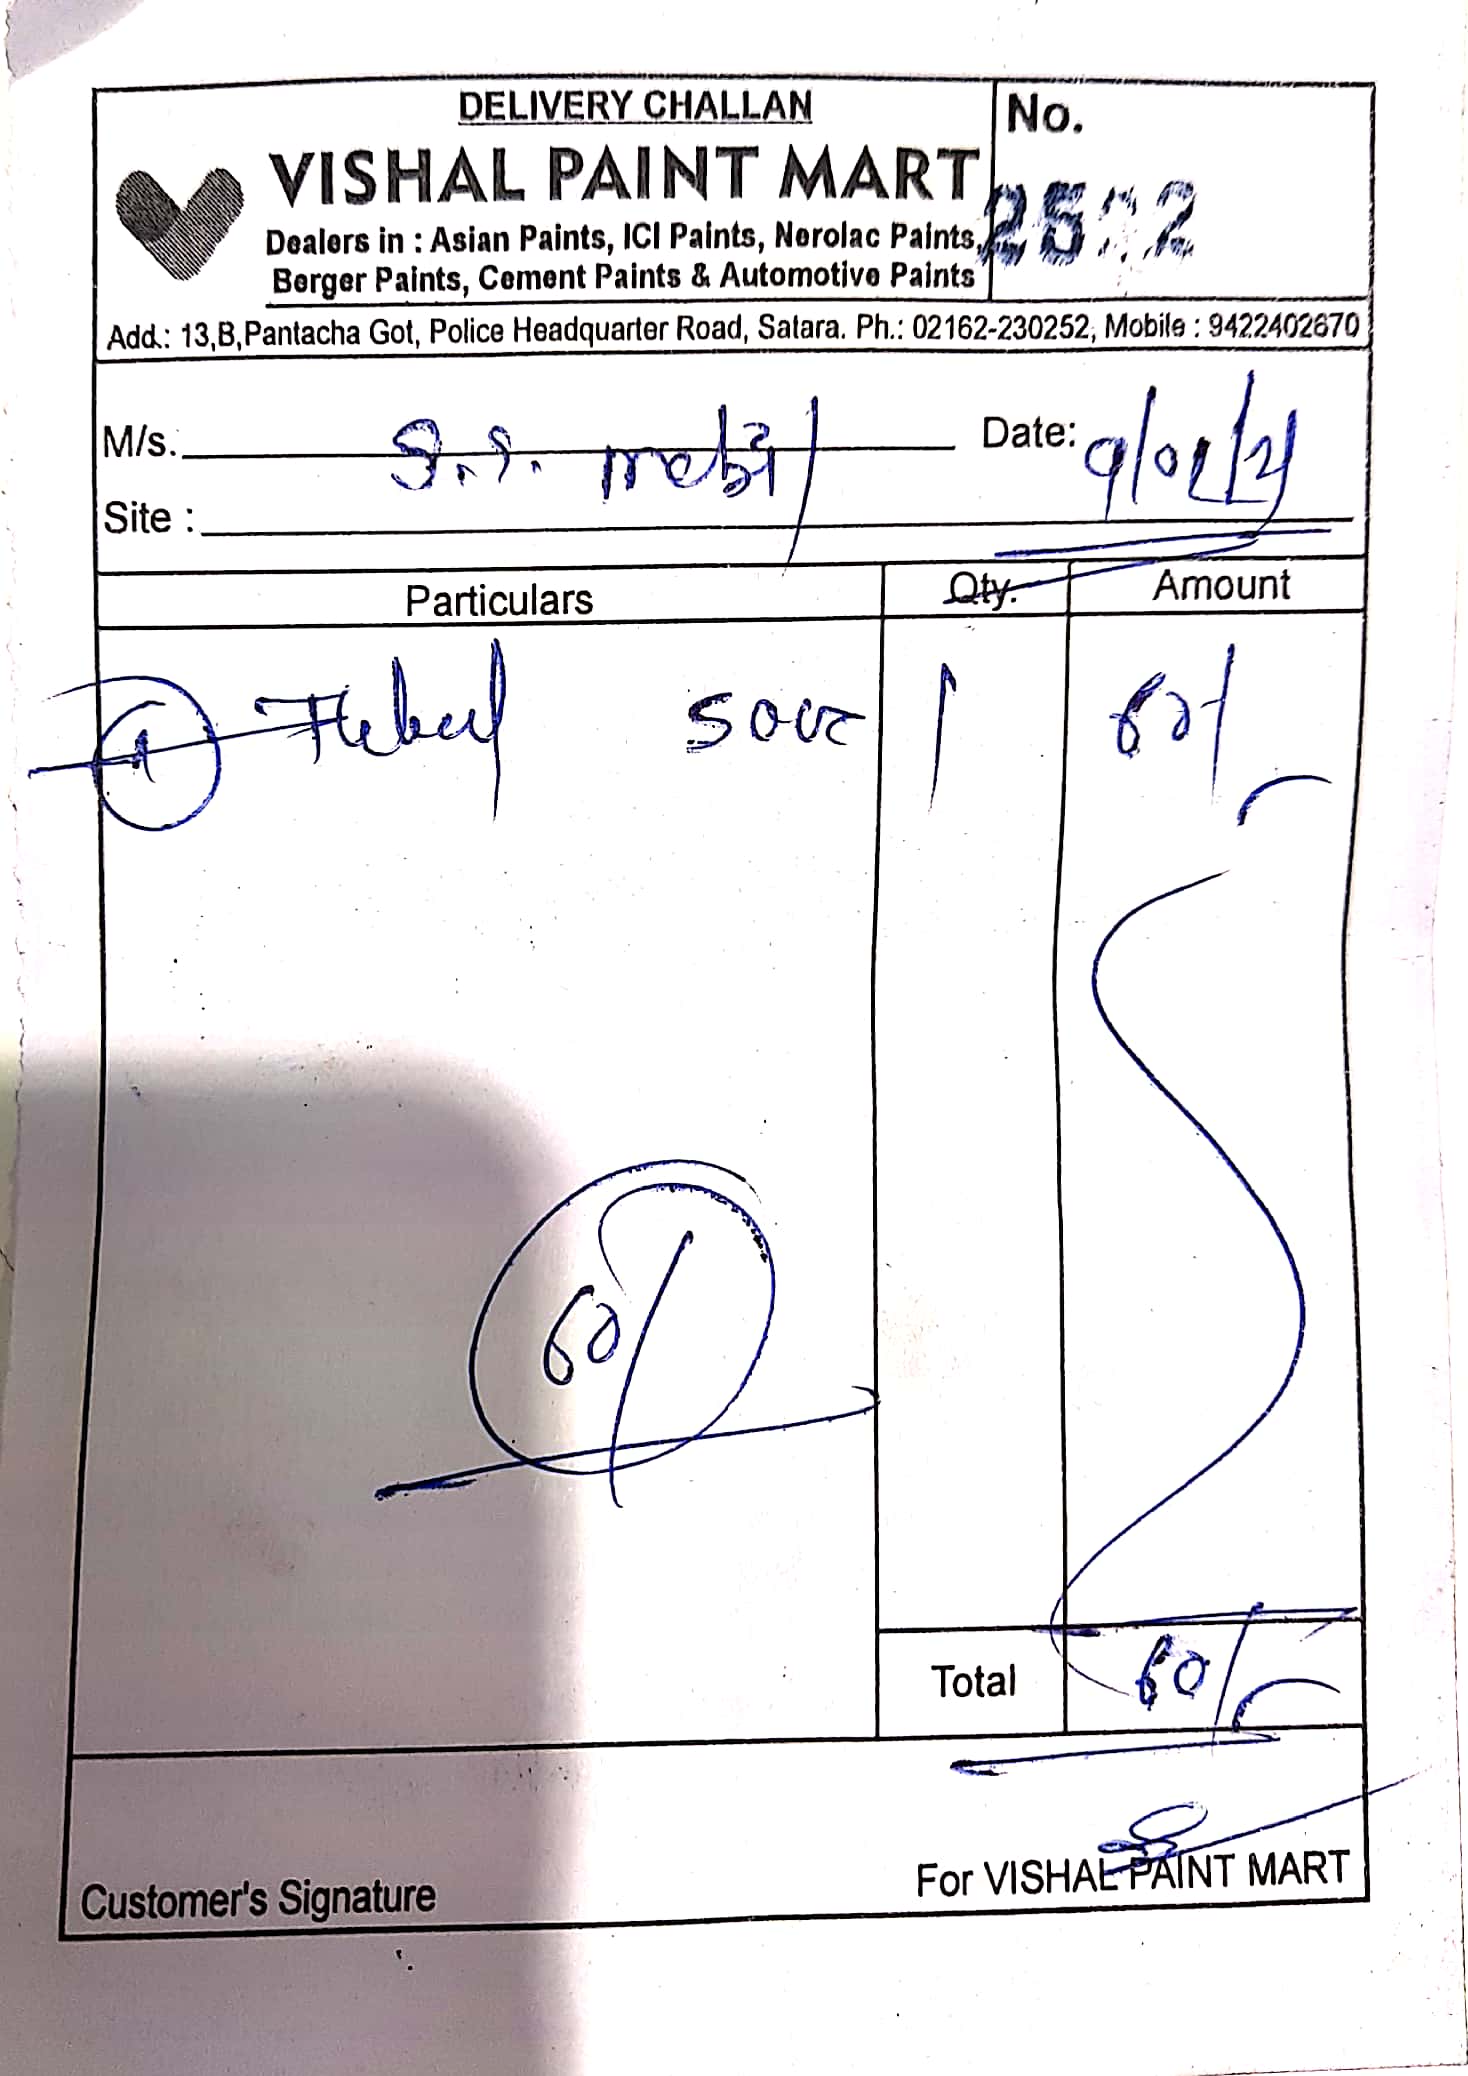 DELIVERY CHALLAN
VISHAL PAINT MART
Dealers in : Asian Paints, ICI Paints, Nerolac Paints,
Berger Paints, Cement Paints & Automotive Paints
No.
Add.: 13,B,Pantacha Got, Police Headquarter Road, Satara. Ph.: 02162-230252, Mobile : 9422402670
M/s.
Date:
Site :
Particulars Qty. Amount
1 500 1 60/-
60/
Total 60/-
Customer's Signature
For VISHAL PAINT MART